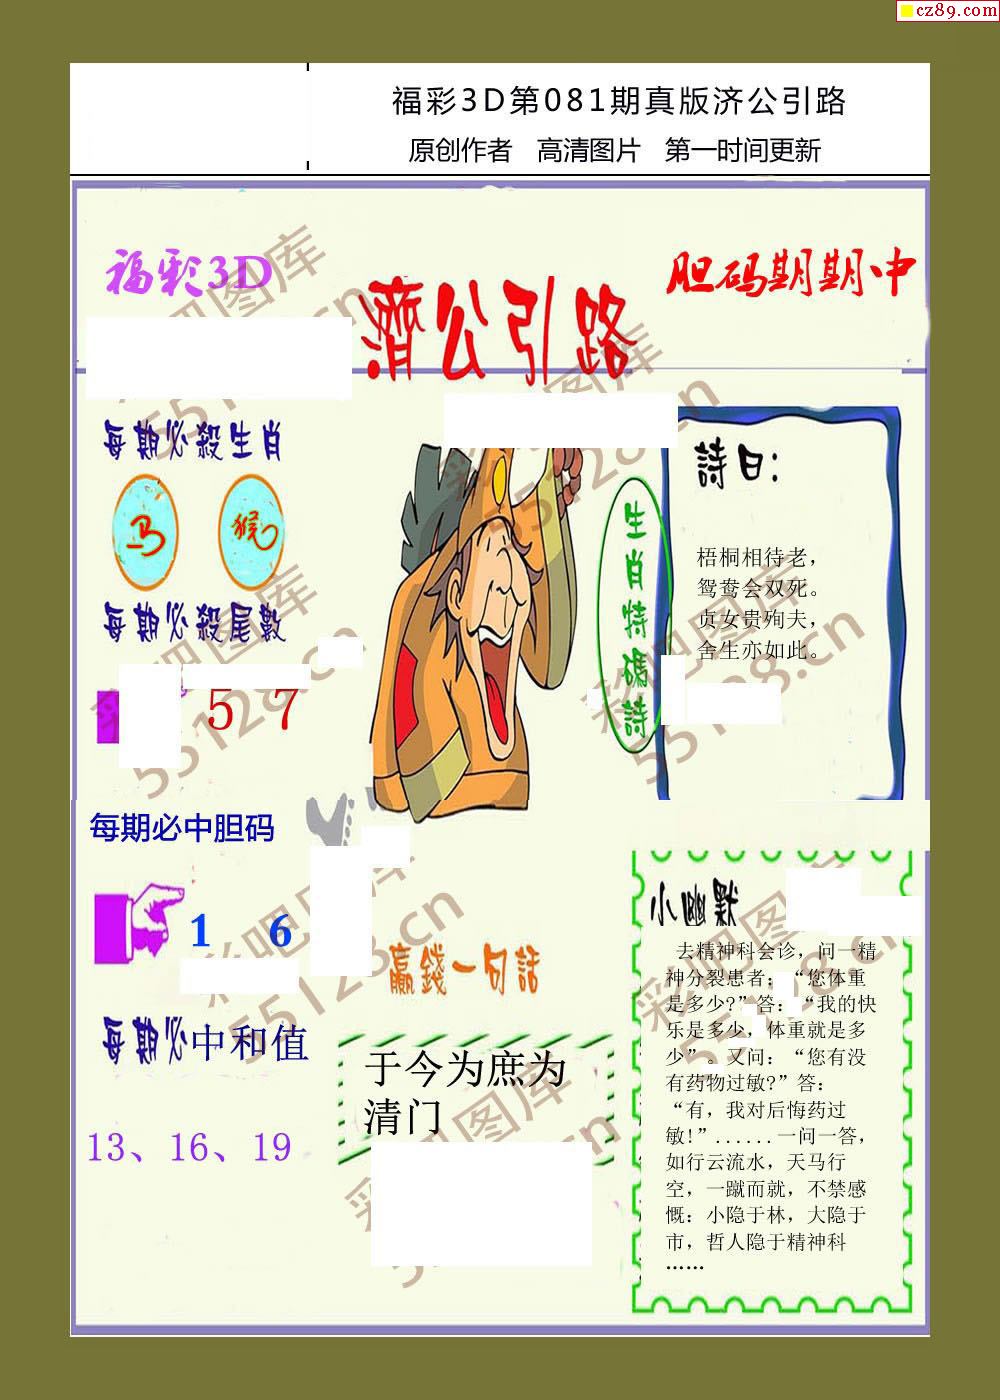 cz89.com
福彩3D第081期真版济公引路
原创作者 高清图片 第一时间更新
福彩3D
濟公引路
胆码期期中
每期必殺生肖
马 猴
每期必殺尾數
5 7
生肖特碼詩
詩曰：
梧桐相待老，
鸳鸯会双死。
贞女贵殉夫，
舍生亦如此。
每期必中胆码
1 6
每期必中和值
13、16、19
贏錢一句話
于今为庶为
清门
小幽默
去精神科会诊，问一精
神分裂患者：“您体重
是多少?”答：“我的快
乐是多少，体重就是多
少”。又问：“您有没
有药物过敏?”答：
“有，我对后悔药过
敏!”......一问一答，
如行云流水，天马行
空，一蹴而就，不禁感
慨：小隐于林，大隐于
市，哲人隐于精神科
……
彩吧图库
55128.cn
彩吧图库
55128.cn
彩吧图库
55128.cn
彩吧图库
55128.cn
彩吧图库
55128.cn
彩吧图库
55128.cn
彩吧图库
55128.cn